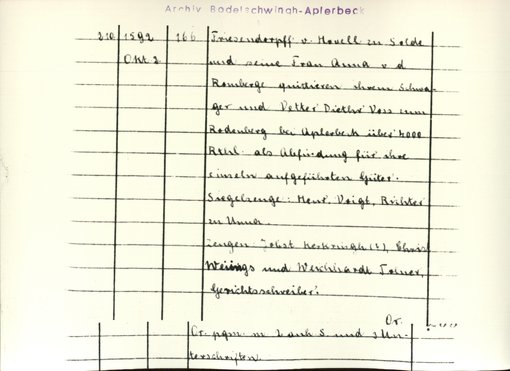 Archiv Bodelschwingh-Aplerbeck
210 1592 166 Friesendorpff v. Hovell zu Solde
Okt 2 und seine Frau Anna v d
Romberge quittieren ihrem Schwa-
ger und Vetter Diethr Voss zum
Rodenberg bei Aplerbeck über 4000
Rthl. als Abfindung für ihre
einzeln aufgeführten Güter.
Siegelzeuge: Henr. Voigt, Richter
zu Unna.
Zeugen Jobst (?), Christ
und Tolner,
Gerichtsschreiber.
Or.
Or. pgm. m 2 anh S und 3 Un-
terschriften